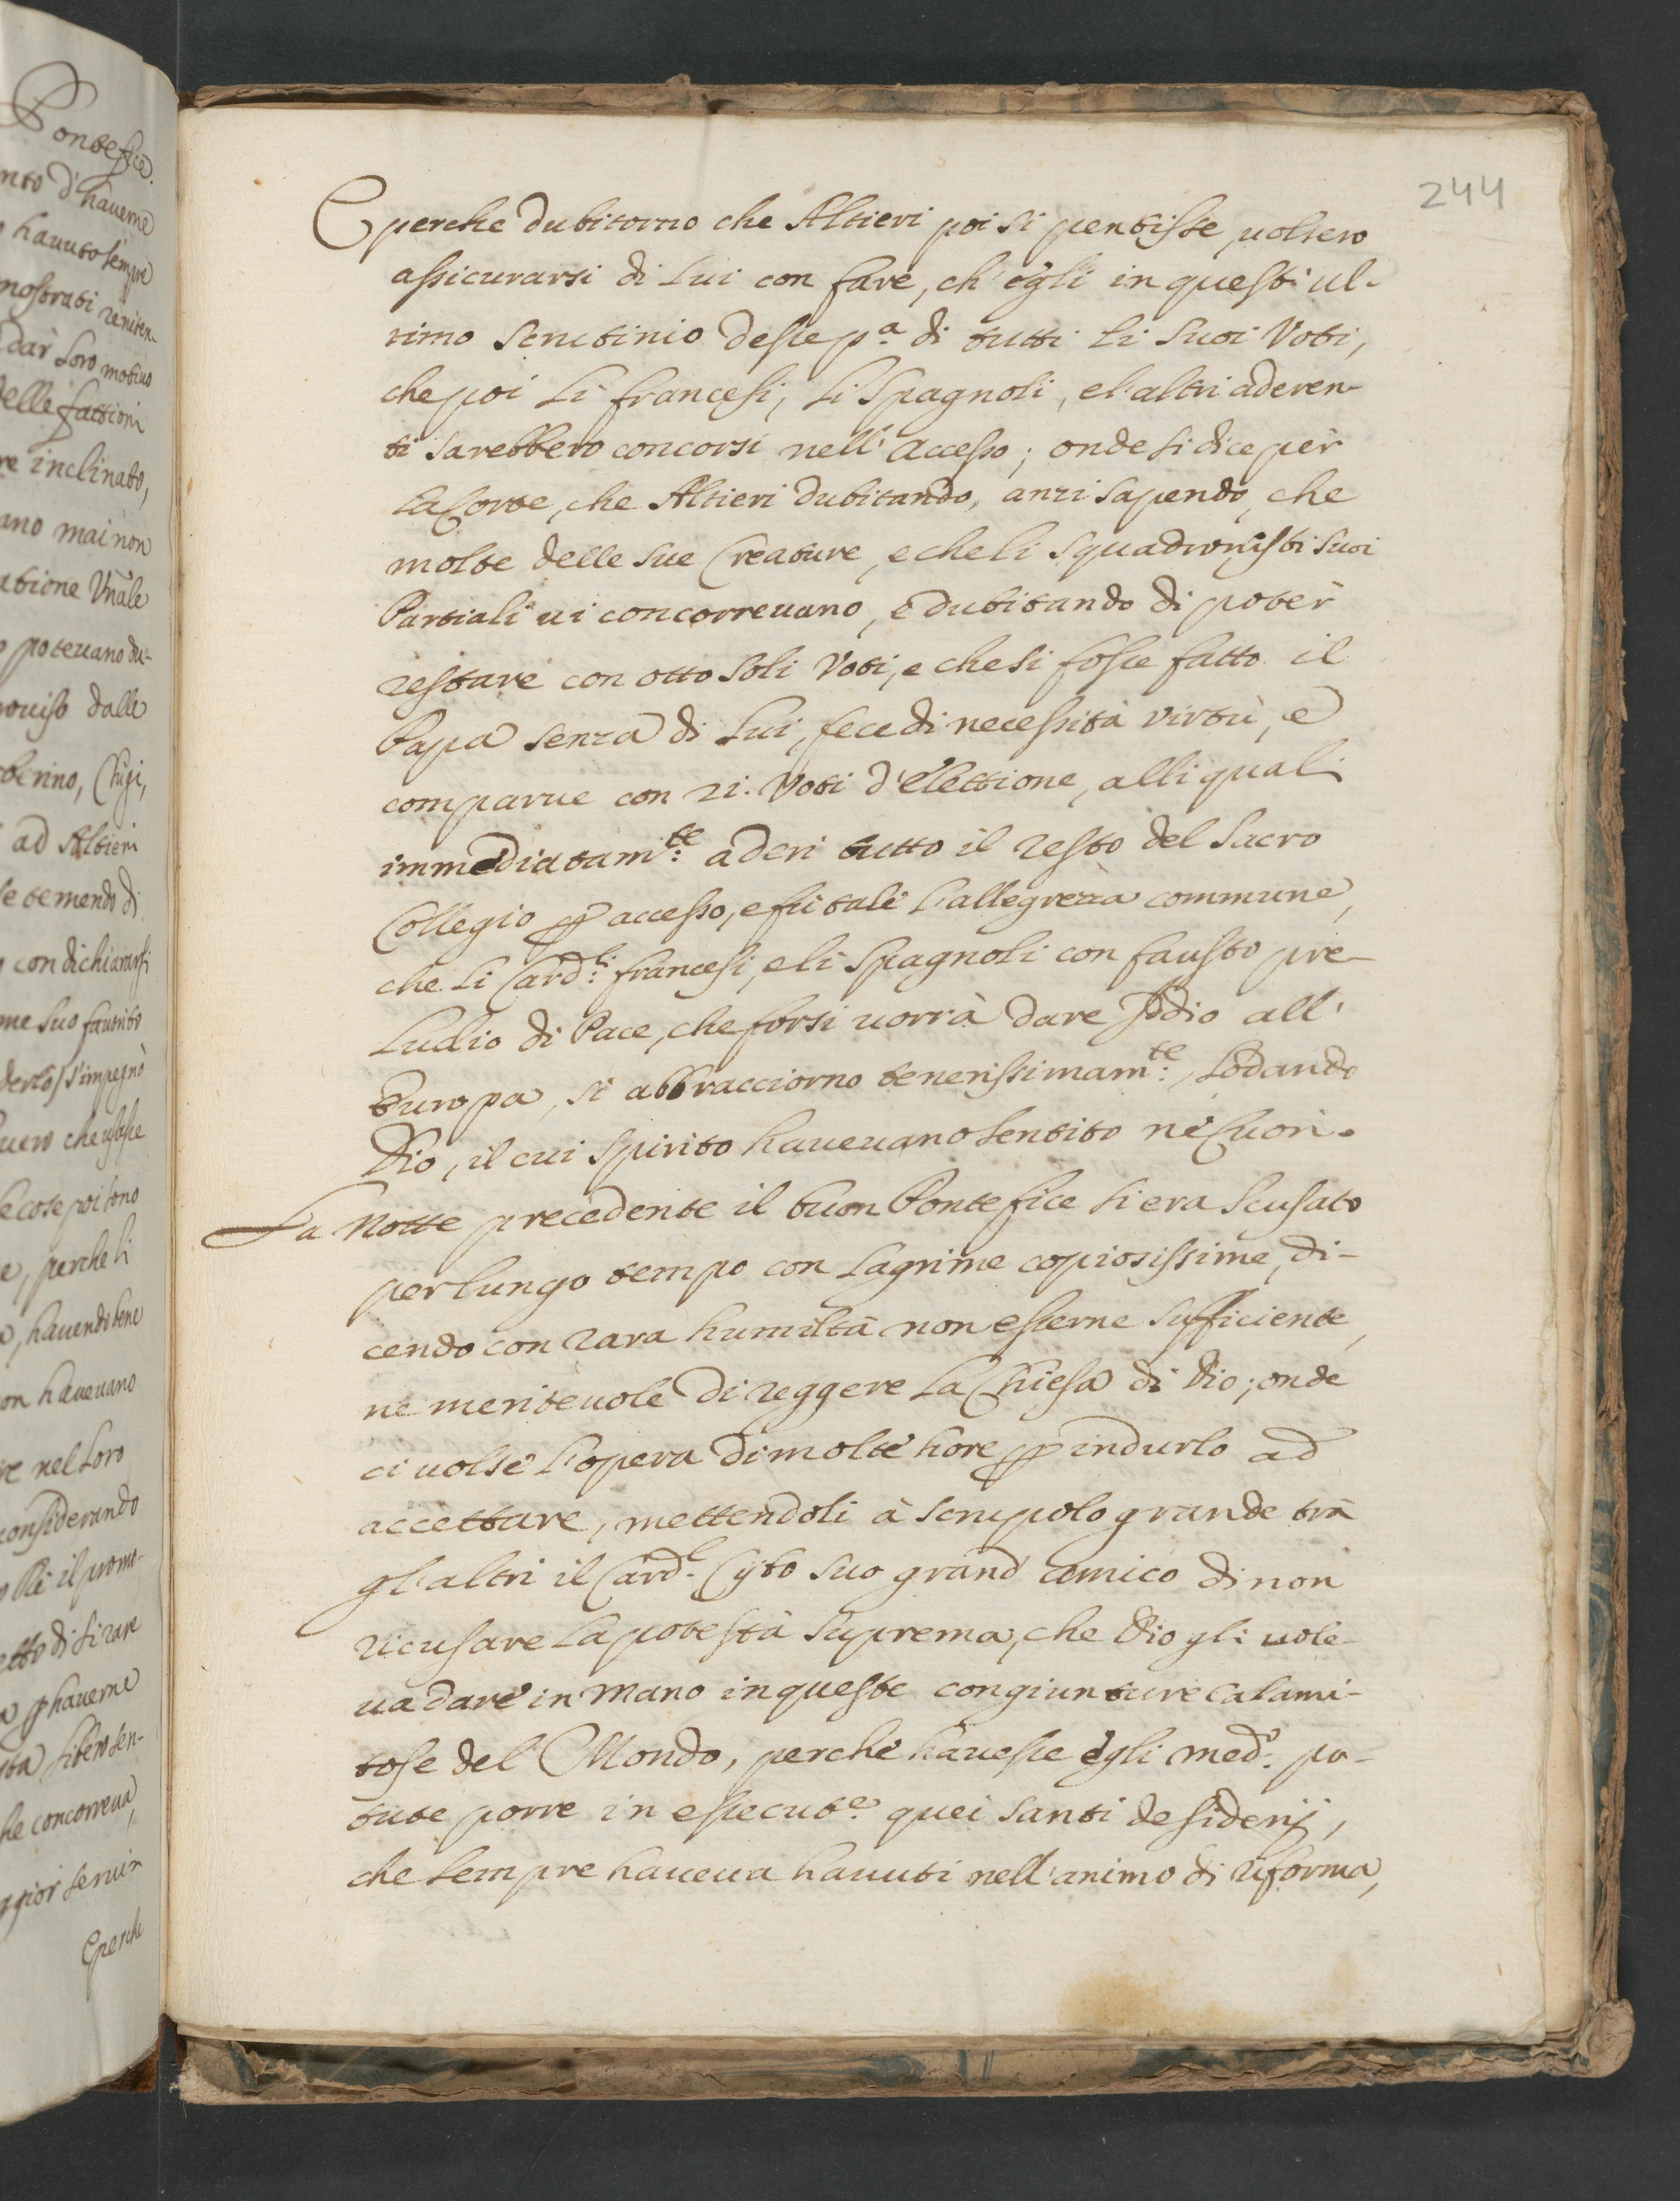 Pontefice.
nto d'hauerne
hauuto sempre
mostrati reniten-
dar loro motiuo
delle fattioni
re inclinato,
ano mai non
atione Vnãle
poteuano du-
rouiso dalle
berino, Chigi,
ad Altieri
se temendo di
con dichiararsi
me suo fauorito
derlo s'impegnò
uero che usasse
le cose poi sono
e, perche li
a, hauendo bene
on haueuano
re nel loro
considerando
Rè il promo-
etto di tirare
a p hauerne
ta libero sen-
he concorreua,
ggior seruir
E perche
244
E perche dubitorno che Altieri poi si pentisse, uolsero
assicurarsi di lui con fare, ch'egli in questi ul-
timo scrutinio desse p.ª di tutti li suoi Voti,
che poi li francesi, li Spagnoli, e l'altri aderen-
ti sarebbero concorsi nell'accesso; onde si dice per
la Corte, che Altieri dubitando, anzi sapendo, che
molte delle sue Creature, e che li squadronisti suoi
Partiali ui concorreuano, e dubitando di poter
restare con otto soli Voti, e che si fosse fatto il
Papa senza di lui, fece di necessità virtù, e
comparue con 21. Voti d'elettione, alli quali
immediatam.te aderi tutto il resto del Sacro
Collegio p accesso, e fù tale l'allegrezza commune,
che li Card.li francesi, e li Spagnoli con fausto pre-
ludio di Pace, che forsi uorrà dare Iddio all'
Europa, si abbracciorno tenerissimam.te, lodando
Dio, il cui spirito haueuano sentito ne Cuori.
La Notte precedente il buon Pontefice si era scusato
per lungo tempo con lagrime copiosissime, di-
cendo con rara humiltà non esserne sufficiente,
ne meriteuole di reggere la Chiesa di Dio; onde
ci uolse l'opera di molte hore p indurlo ad
accettare, mettendoli à scrupolo grande trà
gl'altri il Card.l Cybo suo grand'amico di non
ricusare la potestà suprema, che Dio gli uole-
ua dare in mano in queste congiunture calami-
tose del Mondo, perche hauesse egli med.º po-
tute porre in essecut.e quei santi desiderij,
che sempre haueua hauuti nell'animo di riforma,